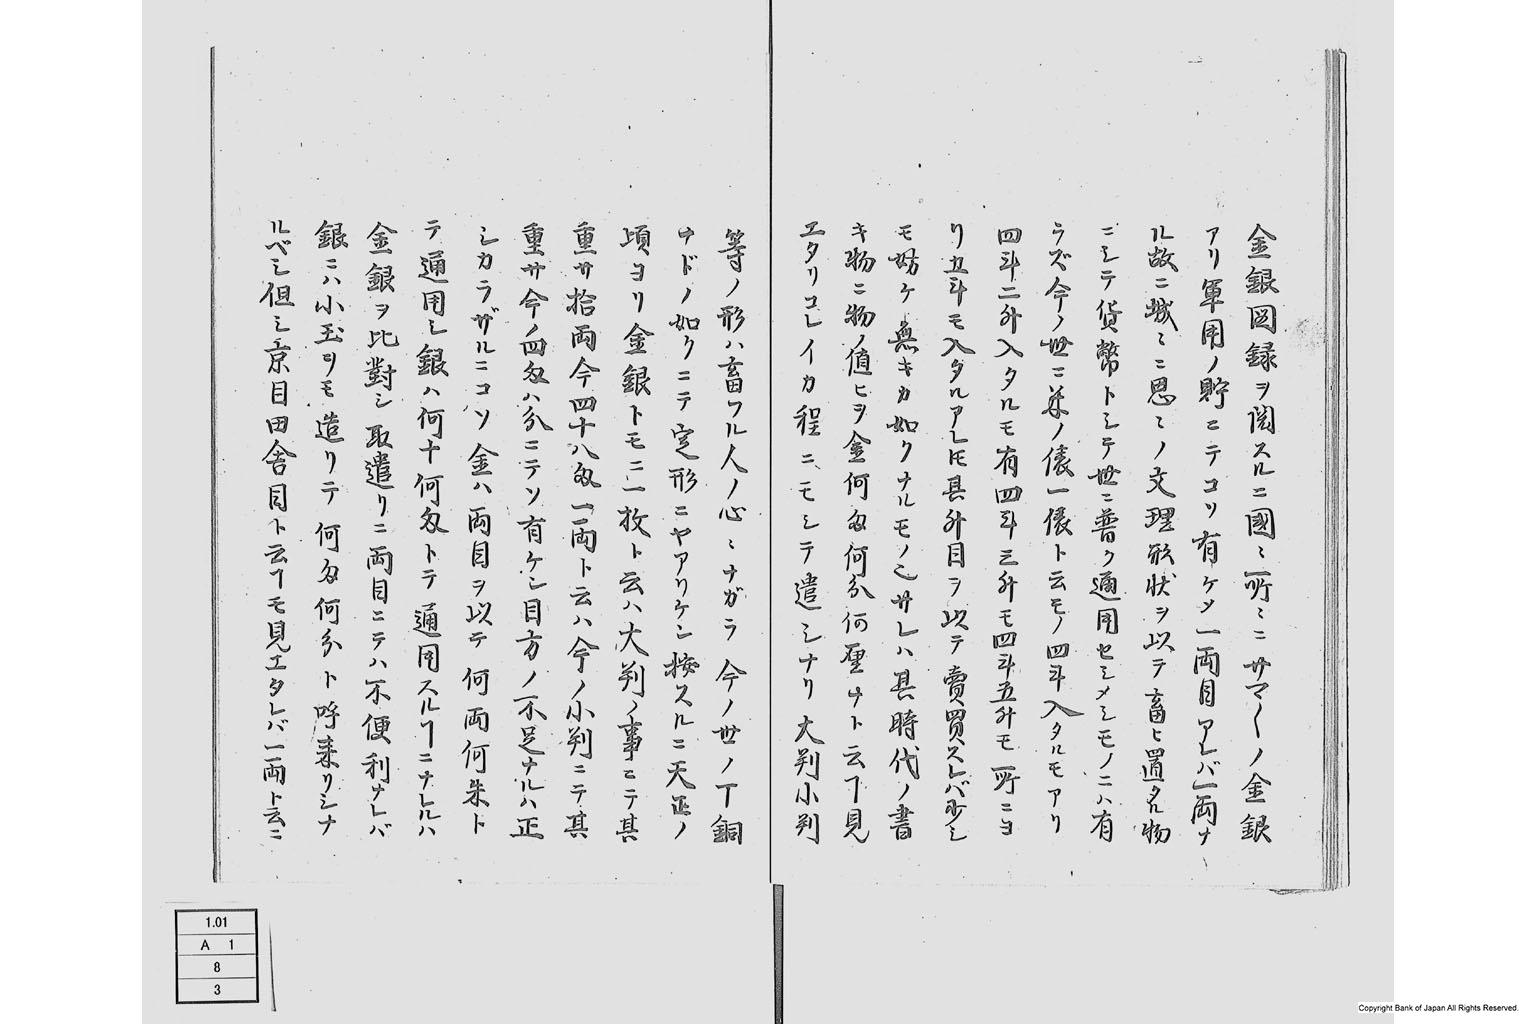 金銀図録ヲ閲スルニ國〻所〻ニサマ〱ノ金銀
アリ軍用ノ貯ニテコソ有ケメ一両目アレバ一両ナ
ル故ニ城〻ニ思〻ノ文理形状ヲ以テ畜ヒ置タル物
ニシテ貨幣トシテ世ニ普ク通用セシメシモノニハ有
ラズ今ノ世ニ米ノ俵一俵ト云モノ四斗入タルモアリ
四斗二升入タルモ有四斗三升モ四斗五升モ所ニヨ
リ五斗モ入タルアレ𪜈其升目ヲ以テ賣買スレバ少シ
モ妨ケ無キカ如クナルモノ也サレハ其時代ノ書
キ物ニ物ノ値ヒヲ金何匁何分何厘ナト云ヿ見
エタリコレイカ程ニモシテ遣シナリ大判小判
等ノ形ハ畜フル人ノ心〻ナガラ今ノ世ノ丁銅
ナドノ如クニテ定形ニヤアリケン按スルニ天正ノ
頃ヨリ金銀トモニ一枚ト云ハ大判ノ事ニテ其
重サ拾両今四十八匁一両ト云ハ今ノ小判ニテ其
重サ今ノ四匁八分ニテソ有ケシ目方ノ不足ナルハ正
シカラザルニコソ金ハ両目ヲ以テ何両何朱ト
テ通用シ銀ハ何十何匁トテ通用スルヿニナレルハ
金銀ヲ比對シ取遣リニ両目ニテハ不便利ナレバ
銀ニハ小玉ヲモ造リテ何匁何分ト呼来リシナ
ルベシ但シ京目田舎目ト云ヿモ見エタレバ一両ト云ニ
1.01
A 1
8
3
Copyright Bank of Japan All Rights Reserved.